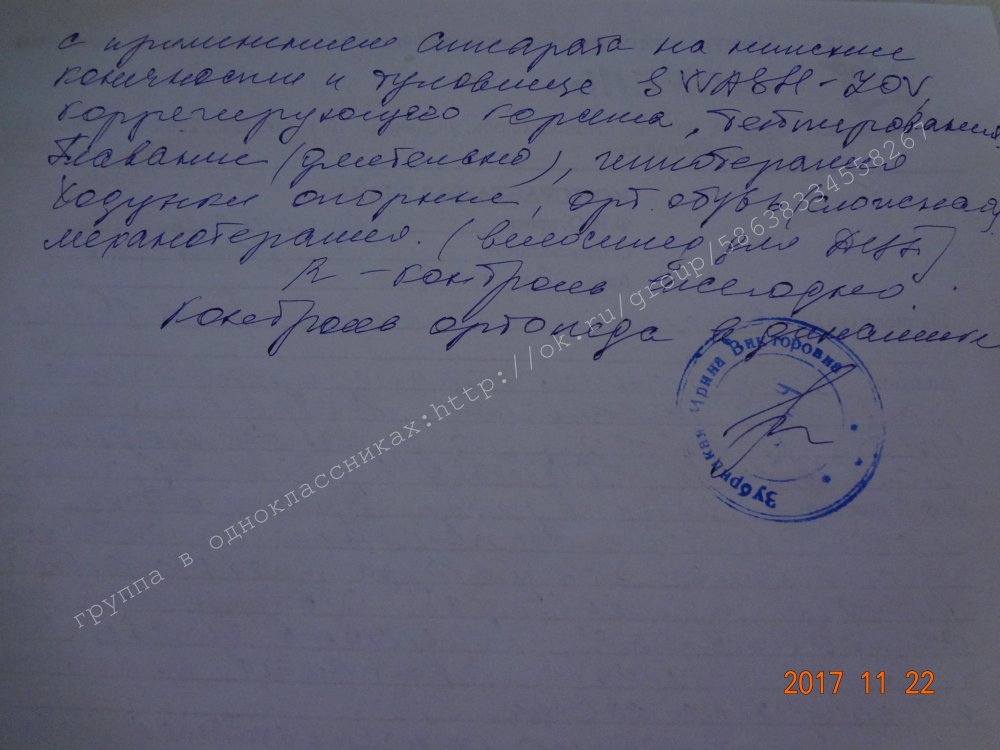 с применением аппарата на нижние
конечности и туловище SWASH-ZOV,
корригирующего корсета, тейпирования,
Плавание (длительно), иппотерапия
Ходунки опорные, орт. обувь сложная,
механотерапия. (велосипед для ДЦП)
R-контроль ежегодно.
Контроль ортопеда в динамике
Зубрицкая Ирина Викторовна
группа в одноклассниках:http://ok.ru/group/58638334558267
2017 11 22